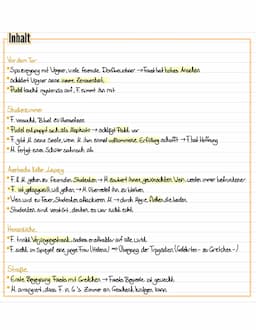 Inhalt
Vor dem Tor:
* Spaziergang mit Wagner, viele fremde, Dorfbewohner → Faust hat hohes Ansehen
* schildert Wagner seine innere Zerrissenheit
* Pudel taucht mysteriös auf, F. nimmt ihn mit
Studierzimmer:
* F. versucht, Bibel zu übersetzen
* Pudel entpuppt sich als Mephisto → schlägt Pakt vor
* F. gibt M. seine Seele, wenn M. ihm einen vollkommene Erfüllung schafft → Faust Hoffnung
* M. fertigt einen Schüler sarkastisch ab
Auerbachs Keller Leipzig
* F. & M. gehen zu feiernden Studenten → M. zaubert ihnen gewünschten Wein, werden immer betrunkener
* F. ist gelangweilt, will gehen → M. überredet ihn zu bleiben
* Wein wird zu Feuer, Studenten attackieren M. → durch Magie fliehen die beiden
* Studenten sind verwirrt, denken es war nicht echt
Hexenküche:
* F. trinkt Verjüngungstrank, sodass er attraktiv auf alle wirkt
* F. sieht im Spiegel eine junge Frau (Helena) → Übergang der Tragödien (Gelehrten- zu Gretchen-)
Straße:
* Erste Begegnung Fausts mit Gretchen → Fausts Begierde ist geweckt
* M. arrangiert, dass F. in G.'s Zimmer ein Geschenk hinlegen kann